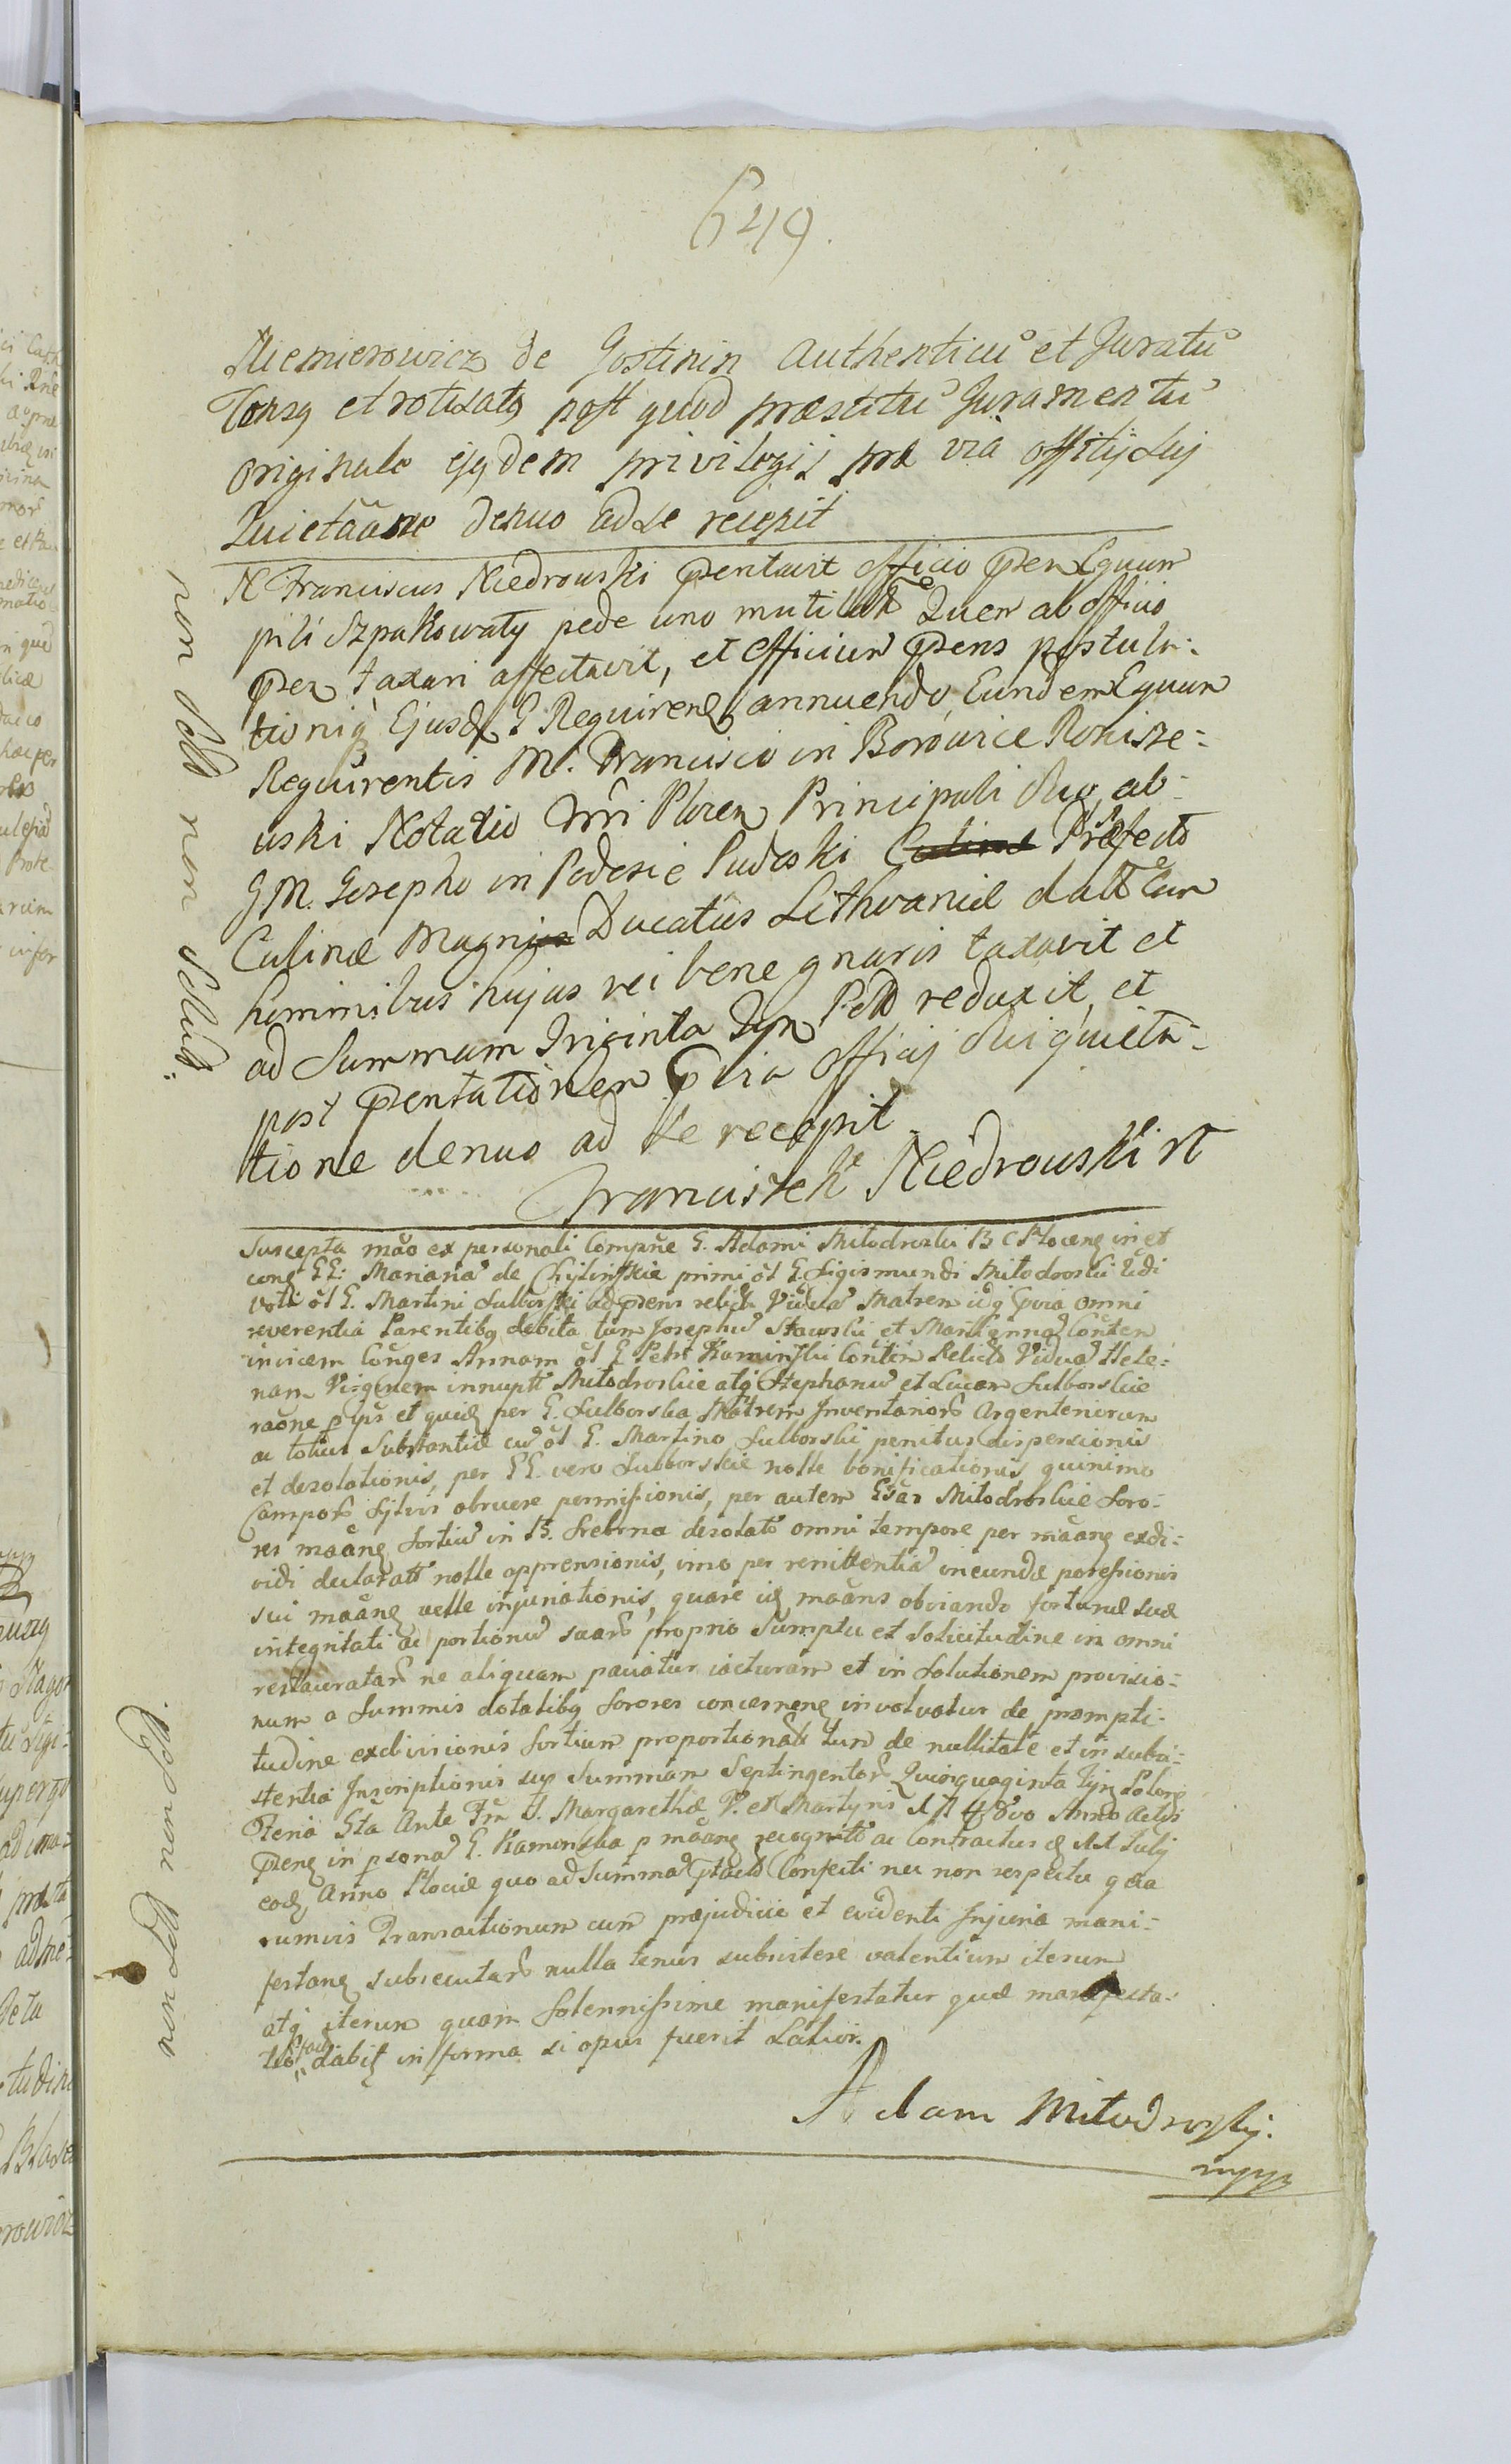 649.
Niemierowicz de Gostinin Authenticũ et Juratũ
originale ejqdem privilegij præ via offitij sui
Quietãõne denuo ad se recepit
N Franciscus Niedrowski pentavit officio pen Equum
pili Szpakowaty pede uno mutilat Quem ab officio
pen taxari affectavit, et officium pens postula-
tioniq Ejusd G Requiren annuendo, Eundem Equum
Requirentis M. Francisco in Borowice Roscisze-
wski Notario Plocen Principali Suo, ab
G M. Josepho in Podosie Pudoski Præfecto
Culinæ Magni Ducatus Lithvaniæ datt Cum
hominibus hujus rei bene gnaris taxavit et
ad Summam Triginta Tyn Poll reduxit, et
post pentationem pvia officij sui quieta-
tione denuo ad se recepit
Franciszek Niedrowski
non Soltt non Soluit.
Suscepta mão ex personali Compñe G. Adami Mitodroski B C Plocen in et
cone GG: Marianã de Chylinskie primi õl G. Sigismundi Mitodroski 2di
voti õl G. Martini Sulborski ad pens relicta Viduã Matrem idq pvia omni
reverentia Parentibq debita tum Josephũ Stawski et Mariannã Conten
invicem Conges Annam õl G Petri Kaminski Contin Relicta Viduã Hele-
nam Virginem innuptt Mitodroskie atq Stephanũ et Lucam Sulborskie
raõne pijs et quia per G. Sulborska Matrem Inventariorũ Argenteriarum
ac totius Substantiæ cũ õl G. Martino Sulborski penitus dispersionis
et desolationis, per GG. vero Sulborskie nolle bonificationis quinimo
Camporũ Sylvis obruere permissionis, per autem Mitodroskie Soro-
res maãne sortiũ in B. Srebrna desolatt omni tempore per mãane exdi-
vidi declaratt nolle apprensionis, imo per renittentiã ineundæ possessionis
sui maãne velle injuriationis, quare id maãns obviando fortunæ suæ
integritati ac portionũ suarũ proprio Sumptu et solicitudine in omni
restauratarũ ne aliquam paciatur iacturam et in solutionem provisio-
num a Summis dotalibq Sorores concernene involvatur de prompti-
tudine exdivisionis sortium proportionatt tum de nullitate et in subsi-
stentia Inscriptionis sup Summam Septingentorũ Quinquaginta Tyn Polon
Feria 5ta Ante Fm S. Margarethæ V. et Martyris Anno actis
pene in psona G. Kaminska p mãane recognitt ac Contractus July
eod Anno Plociæ quo ad Summã Confecti nec non respectu qua
rumvis Transactionum cum præjudicio et evidenti Injuria mani-
festane subsecutarũ nulla tenus subsistere valentium iterum
atq iterum quam solennissime manifestatur quæ manifesta-
tio dabit in forma si opus fuerit Latior.
Adam Mitodroski.
mppa
non Soltt non Soltt.